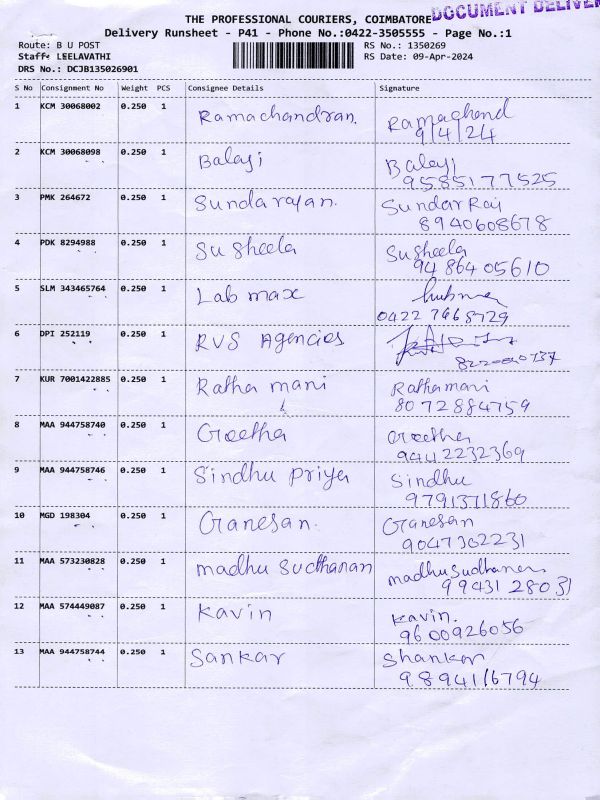 DOCUMENT DELIVER
THE PROFESSIONAL COURIERS, COIMBATORE
Delivery Runsheet - P41 - Phone No.:0422-3505555 - Page No.:1
Route: B U POST RS No.: 1350269
Staff: LEELAVATHI RS Date: 09-Apr-2024
DRS No.: DCJB135026901
S No Consignment No Weight PCS Consignee Details Signature
1 KCM 30068002 0.250 1 Ramachandran. Ramachand
9/4/24
2 KCM 30068098 0.250 1 Balaji Balaji
9585177525
3 PMK 264672 0.250 1 Sundarajan. Sundar Raj
8940608678
4 PDK 8294988 0.250 1 Susheela Susheela
94864 05610
5 SLM 343465764 0.250 1 Lab max
0422 7668729
6 DPI 252119 0.250 1 RVS Agencies
7 KUR 7001422885 0.250 1 Ratha mani Rathamani
8072884759
8 MAA 944758740 0.250 1 Geetha Geetha
9442232369
9 MAA 944758746 0.250 1 Sindhu priya Sindhu
9791371860
10 MGD 198304 0.250 1 Ganesan. Ganesan
9047302231
11 MAA 573230828 0.250 1 madhu Sudhanan madhusudhanan
99431 28031
12 MAA 574449087 0.250 1 Kavin Kavin.
9600926056
13 MAA 944758744 0.250 1 Sankar Shankar
9894116794